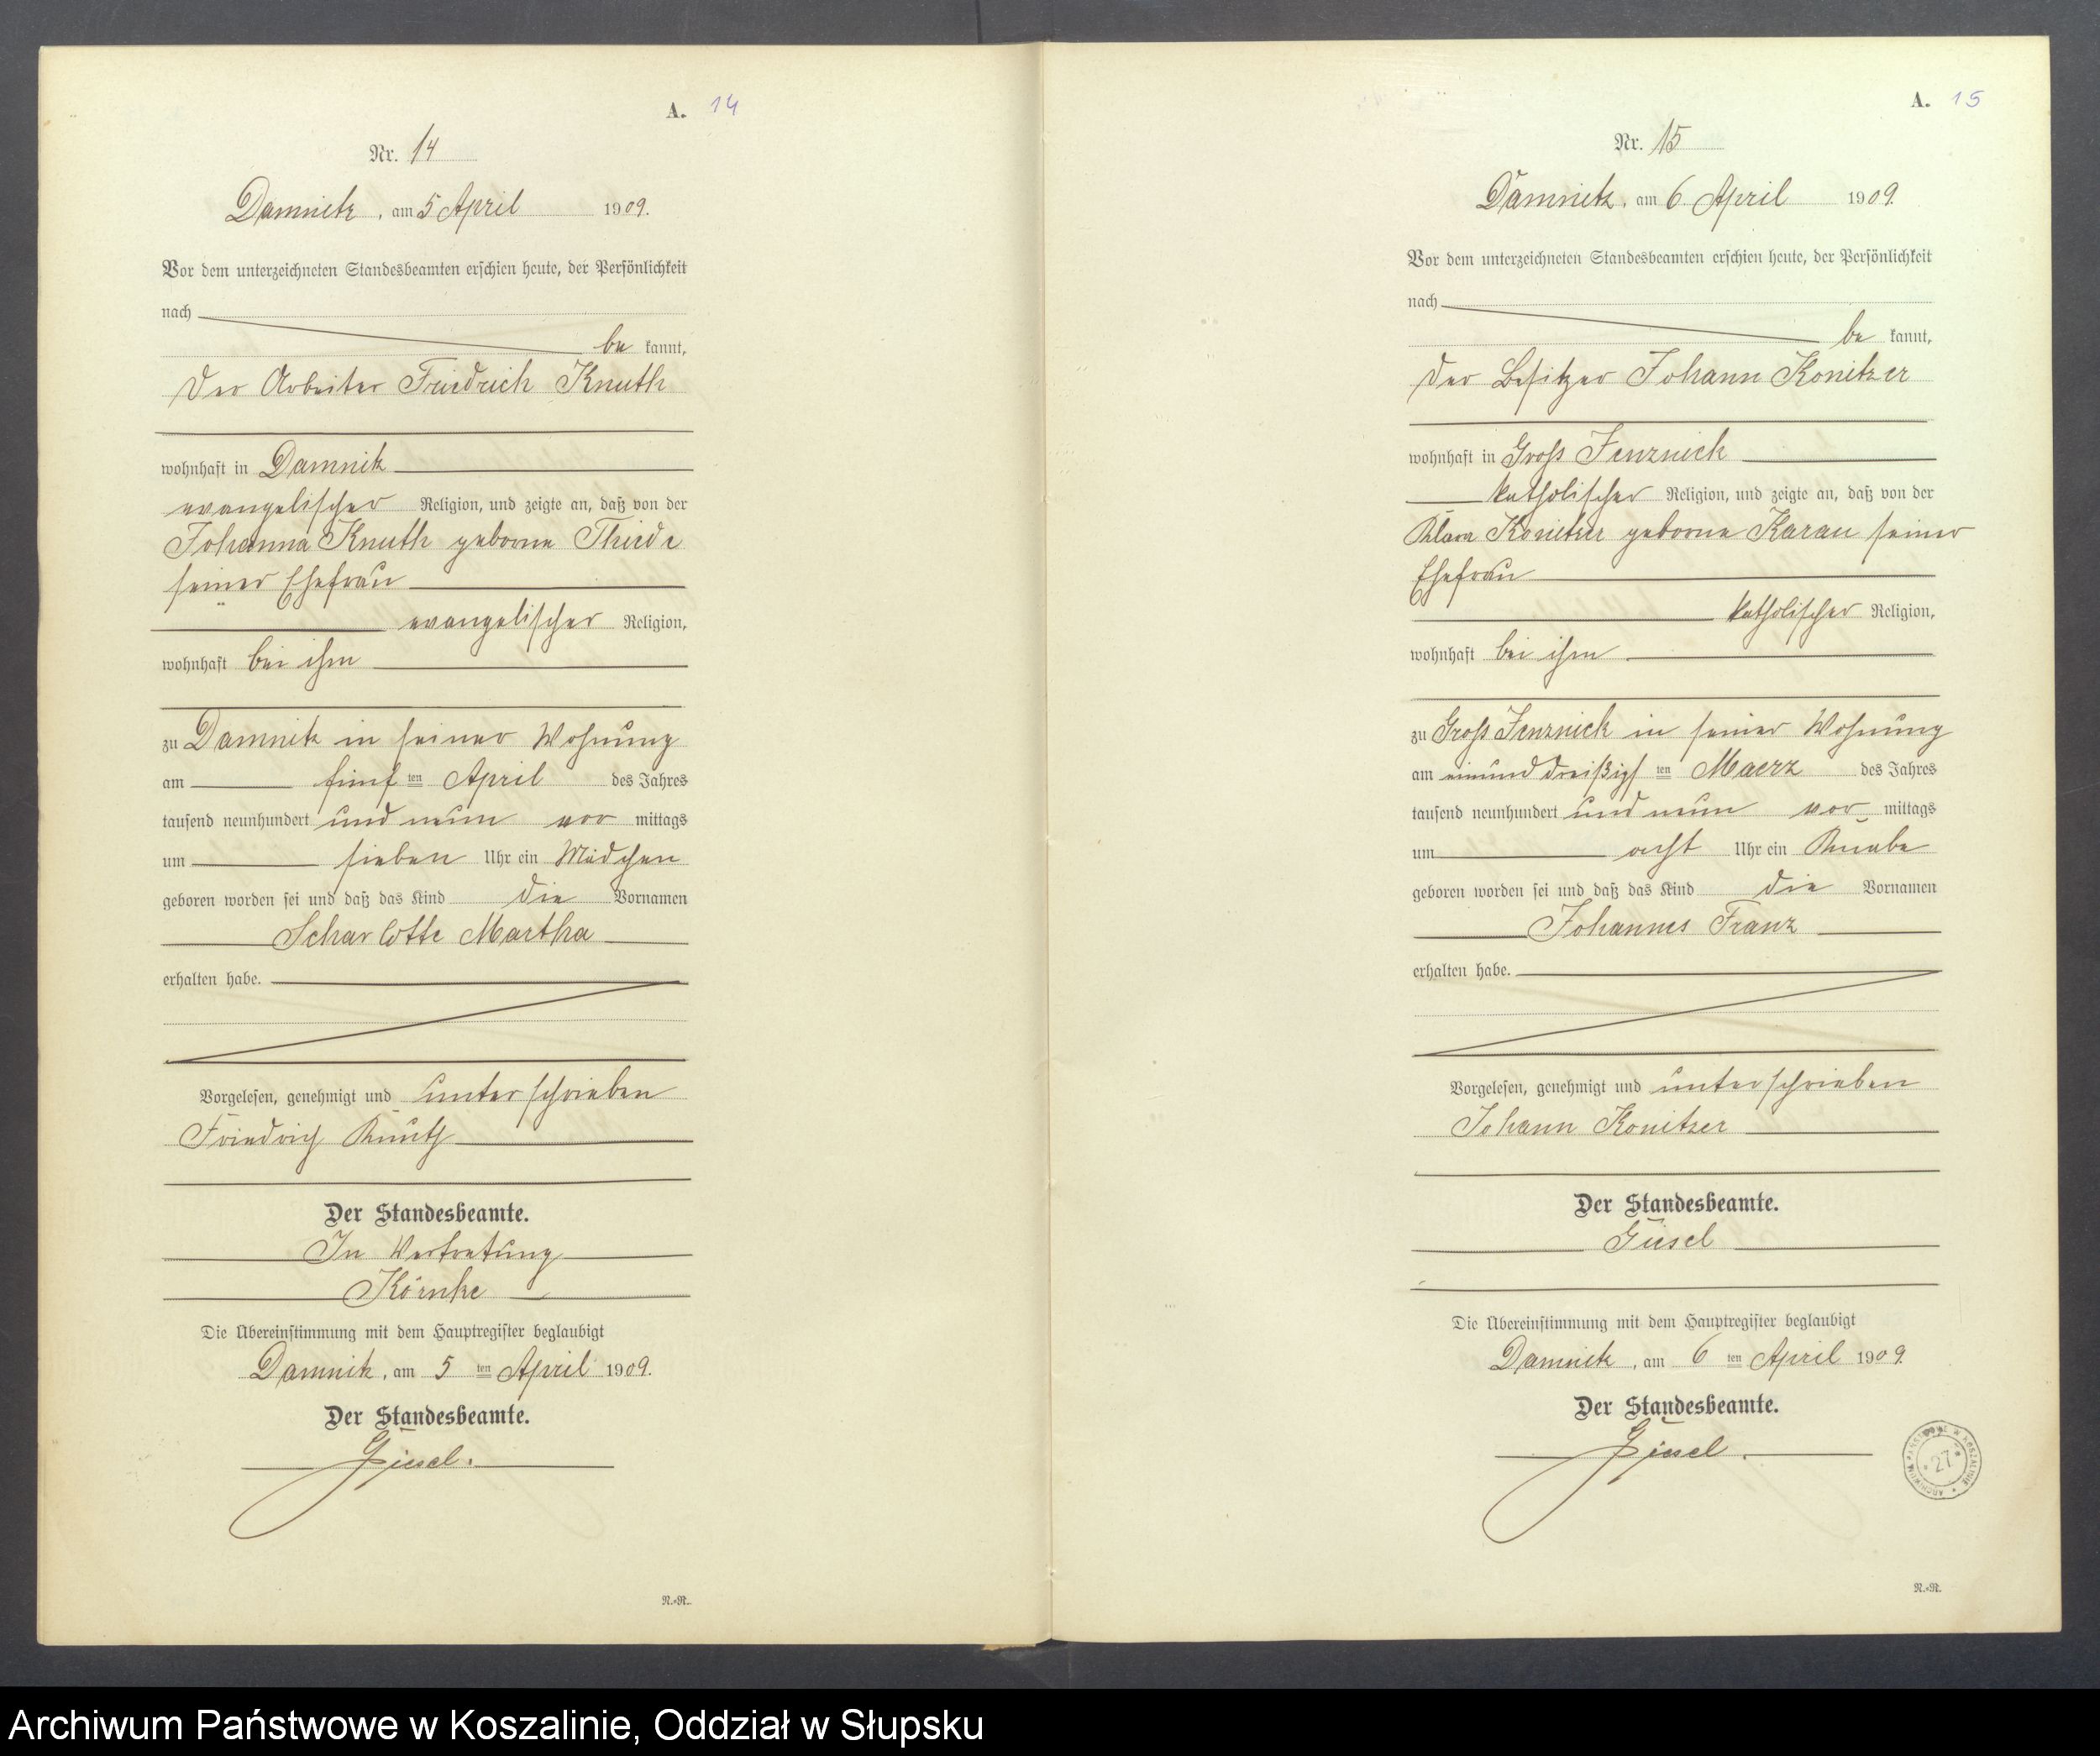 A. 14
Nr. 14
Damnitz, am 5 April 1909.
Vor dem unterzeichneten Standesbeamten erschien heute, der Persönlichkeit
nach
be kannt,
der Arbeiter Friedrich Knuth
wohnhaft in Damnitz
evangelischer Religion, und zeigte an, daß von der
Johanna Knuth geborne Thiede
seiner Ehefrau
evangelischer Religion,
wohnhaft bei ihm
zu Damnitz in seiner Wohnung
am fünf ten April des Jahres
tausend neunhundert und neun vor mittags
um sieben Uhr ein Mädchen
geboren worden sei und daß das Kind die Vornamen
Scharlotte Martha
erhalten habe.
Vorgelesen, genehmigt und unterschrieben
Friedrich Knuth
Der Standesbeamte.
In Vertretung
Körnke
Die Übereinstimmung mit dem Hauptregister beglaubigt
Damnitz, am 5 ten April 1909.
Der Standesbeamte.
Giesel.
N.-R.
A. 15
Nr. 15
Damnitz, am 6 April 1909.
Vor dem unterzeichneten Standesbeamten erschien heute, der Persönlichkeit
nach
be kannt,
der Besitzer Johann Konitzer
wohnhaft in Gross Jenznick
katholischer Religion, und zeigte an, daß von der
Klara Konitzer geborne Karau seiner
Ehefrau
katholischer Religion,
wohnhaft bei ihm
zu Gross Jenznick in seiner Wohnung
am einund dreißigs ten Maerz des Jahres
tausend neunhundert und neun vor mittags
um acht Uhr ein Knabe
geboren worden sei und daß das Kind die Vornamen
Johannes Franz
erhalten habe.
Vorgelesen, genehmigt und unterschrieben
Johann Konitzer
Der Standesbeamte.
Giesel
Die Übereinstimmung mit dem Hauptregister beglaubigt
Damnitz, am 6 ten April 1909.
Der Standesbeamte.
Giesel.
ARCHIWUM PAŃSTWOWE W KOSZALINIE * 27 *
N.-R.
Archiwum Państwowe w Koszalinie, Oddział w Słupsku